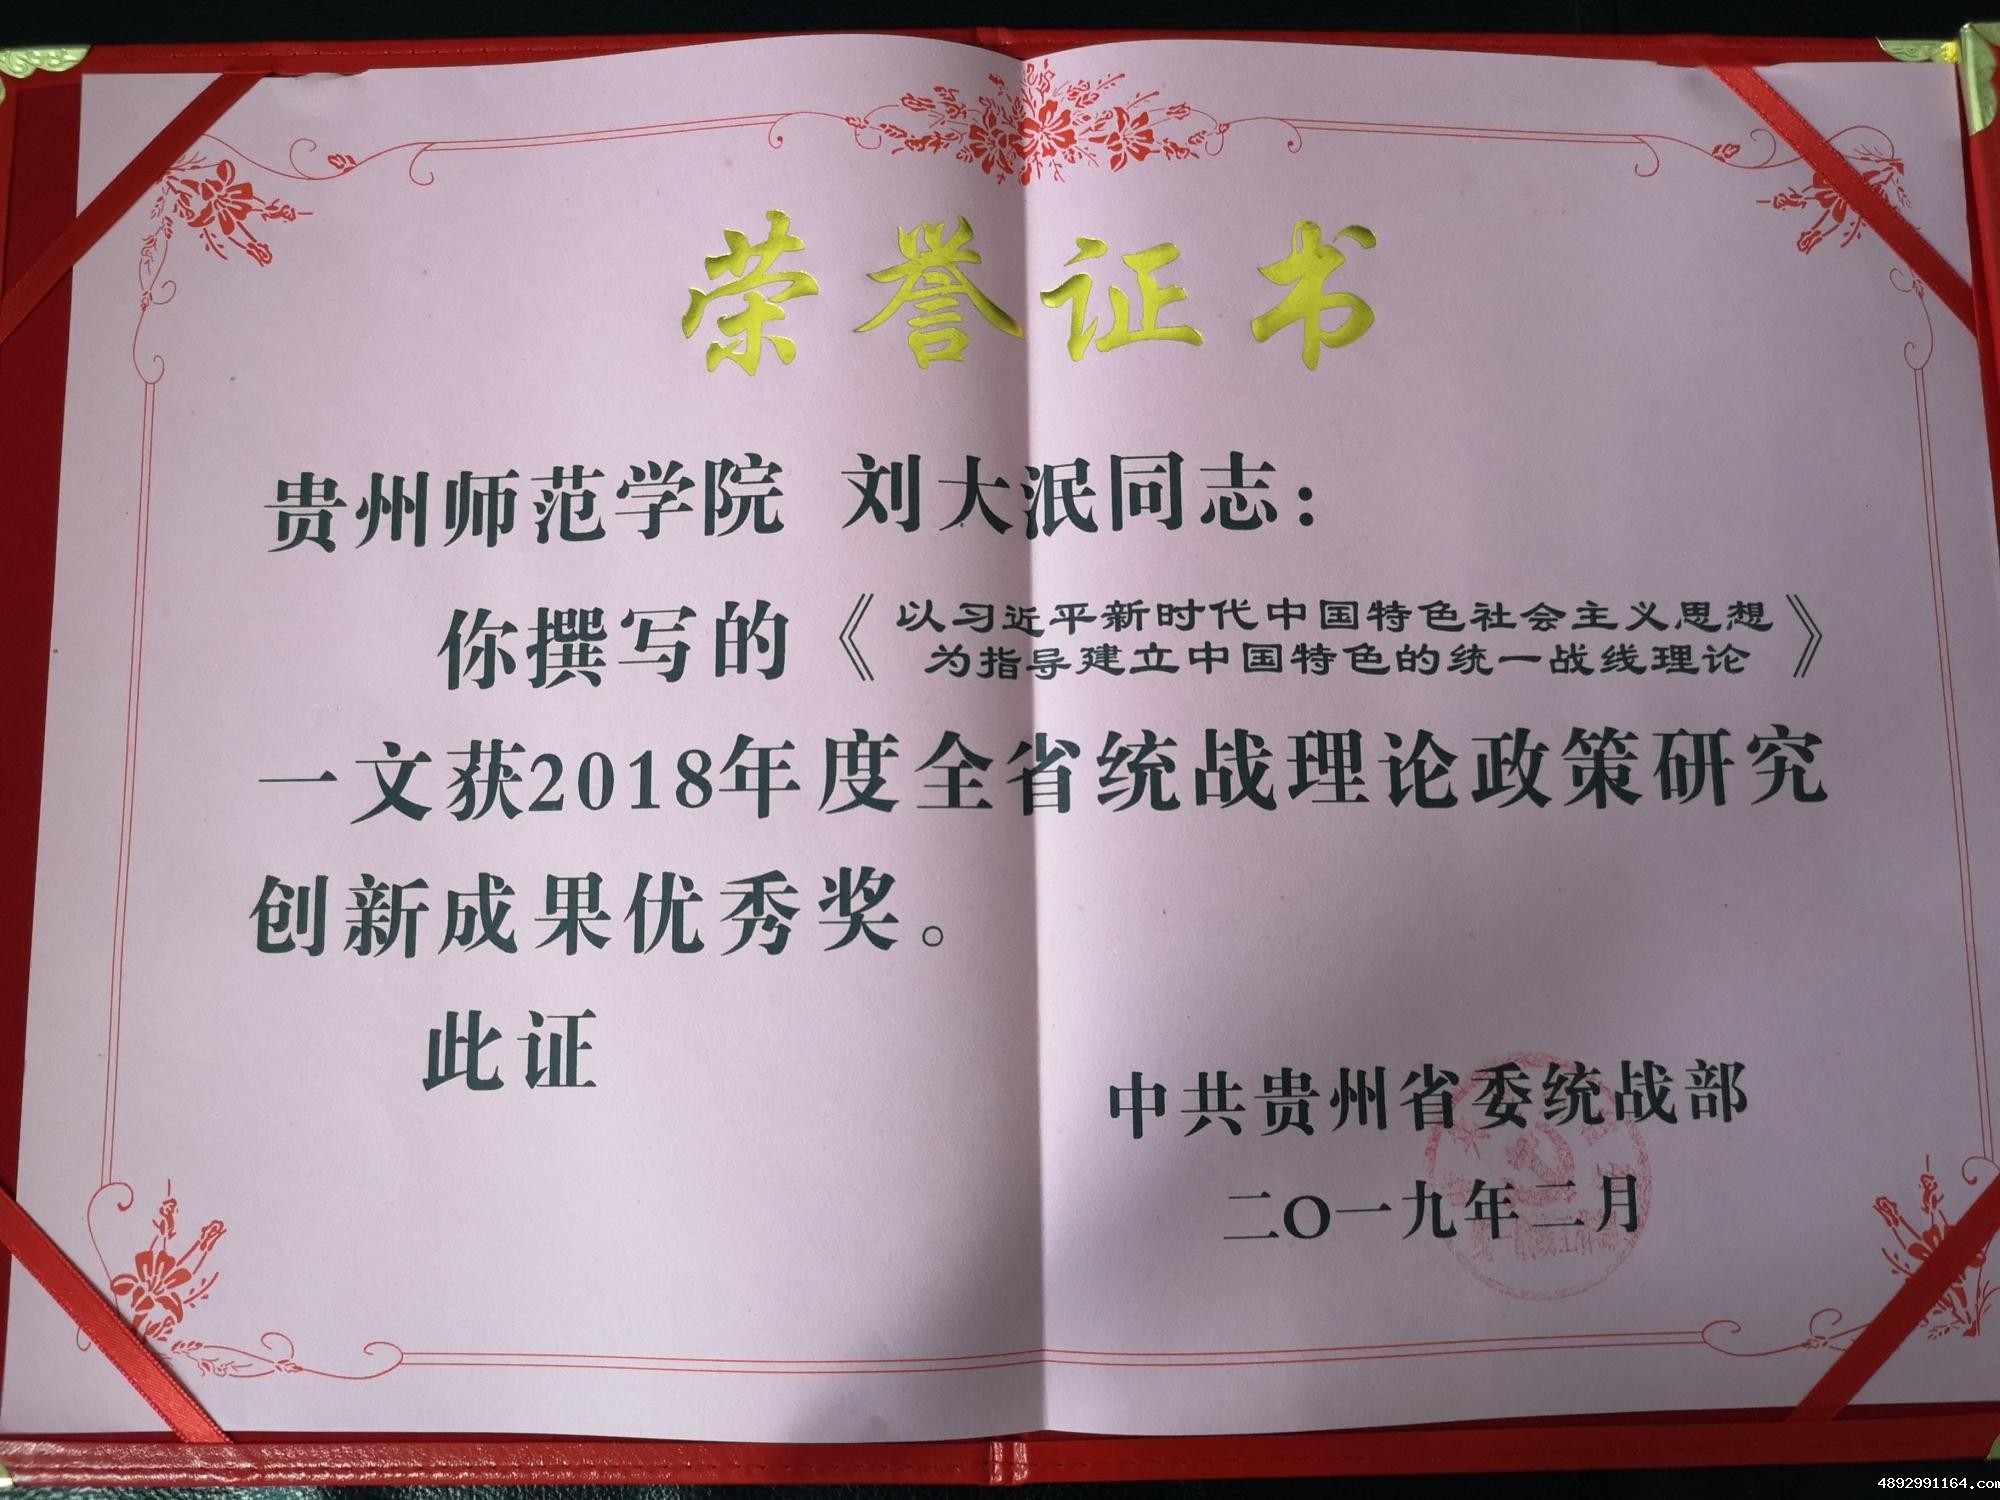 荣誉证书
贵州师范学院 刘大泯同志：
你撰写的《以习近平新时代中国特色社会主义思想
为指导建立中国特色的统一战线理论》
一文获2018年度全省统战理论政策研究
创新成果优秀奖。
此证
中共贵州省委统战部
二〇一九年二月
4892991164.com